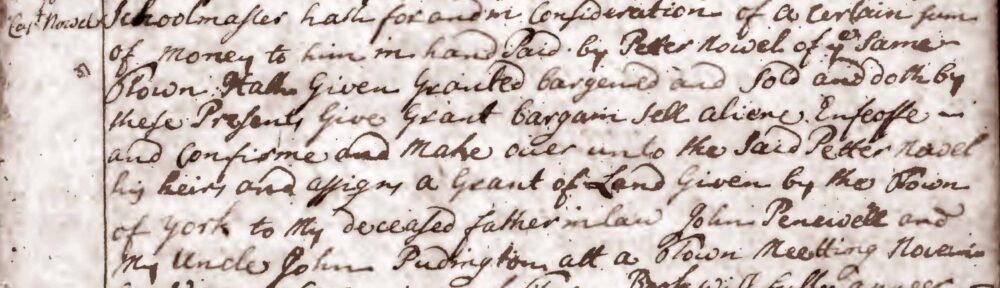 Schoolmaster hath for and in Consideration of a certain sum
of Money to him in hand Paid by Petter Nowel of ye Same
Town Hath Given Granted bargened and Sold and doth by
these Presents Give Grant bargain sell aliene Enfeoffe
and Confirme and Make over unto the Said Petter Nowel
his heirs and assigns a Grant of Land Given by the Town
of York to My deceased father in law John Penewill and
My Uncle John Pudington att a Town Meetting